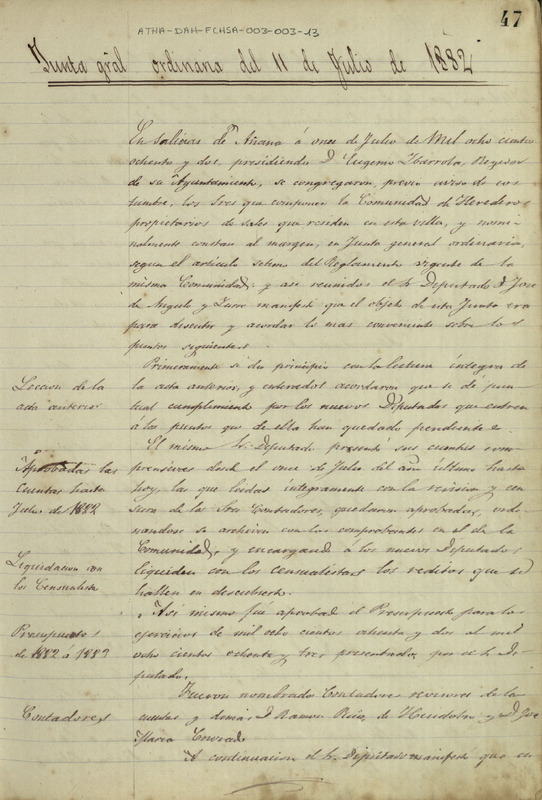 47
ATHA-DAH-FCHSA-003-003-13
Junta gral ordinaria del 11 de Julio de 1882
En Salinas de Añana á once de Julio de Mil ocho cientos
ochenta y dos, presidiendo D Eugenio Ibarrola, Regidor
de su Ayuntamiento, se congregaron, previo aviso de cos
tumbre, los Sres que componen la Comunidad de Herederos
propietarios de sales que residen en esta villa, y nomi
nalmente constan al margen, en Junta general ordinaria,
segun el articulo setimo del Reglamento vigente de la
misma Comunidad; y asi reunidos el Sr Diputado D Jose
de Angulo y manifestó que el objeto de esta Junta era
para discutir y acordar lo mas conveniente sobre los
puntos siguientes.
Leccion de la
acta anterior
Primeramente se dio principio con la lectura integra de
la acta anterior, y enterados acordaron que se dé pun
tual cumplimiento por los nuevos Diputados que entren
á los puntos que de ella han quedado pendientes.
Aprobadas las
cuentas hasta
Julio de 1882
El mismo Sr Diputado presentó sus cuentas com
prensivas desde el once de Julio del año último hasta
hoy, las que leidas integramente con la revision y cen
sura de los Sres Contadores, quedaron aprobadas, orde
nandose se archiven con los comprobantes en el de la
Comunidad, y encargando á los nuevos Diputados
Liquidacion con
los Censualistas
liquiden con los censualistas los reditos que se
hallen en descubierto.
Presupuestos
de 1882 á 1883
Asi mismo fué aprobado el Presupuesto para los
ejercicios de mil ocho cientos ochenta y dos al mil
ocho cientos ochenta y tres, presentado por el Sr Di
putado.
Contadores
Fueron nombrados Contadores revisores de la
cuentas y demas D Ramon Ruiz de y D Jose
Maria
A continuacion el Sr Diputado manifestó que en